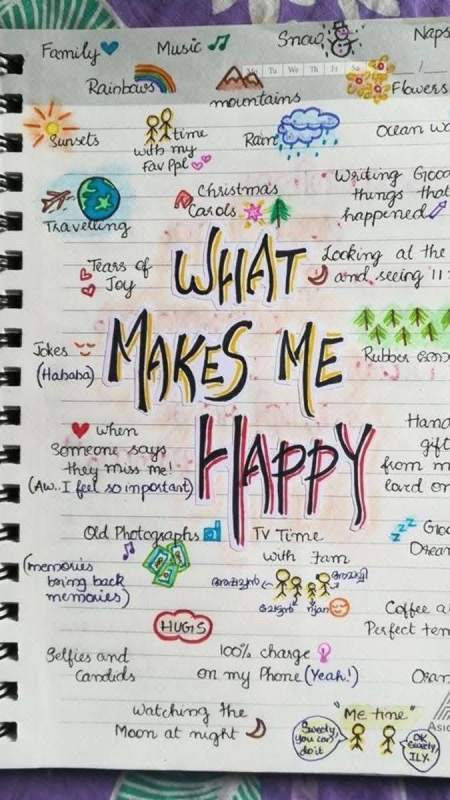 Family Music Snow Naps
Mo Tu We Th Fr Sa
Rainbows mountains Flowers
Sunsets
time
with my
Fav Ppl
Rain
Ocean wa
Travelling
Christmas
Carols
Writing Good
things that
happened
Tears of
Joy
Looking at the
and seeing 11:
WHAT
MAKES ME
HAPPY
Jokes
(Hahaha)
Rubber
when
Someone says
they miss me!
(Aw.. I feel so important)
Hand
gift
from m
loved on
Old Photographs
(memories
bring back
memories)
TV Time
with Fam
ചേട്ടൻ ഞാൻ
zzz
Goo
Drean
HUGS
Coffee a
Perfect tem
Selfies and
Candids
100% charge
on my Phone (Yeah!)
Watching the
Moon at night
"Me time"
Sweety,
you can
do it
OK
Sweety,
ILY.